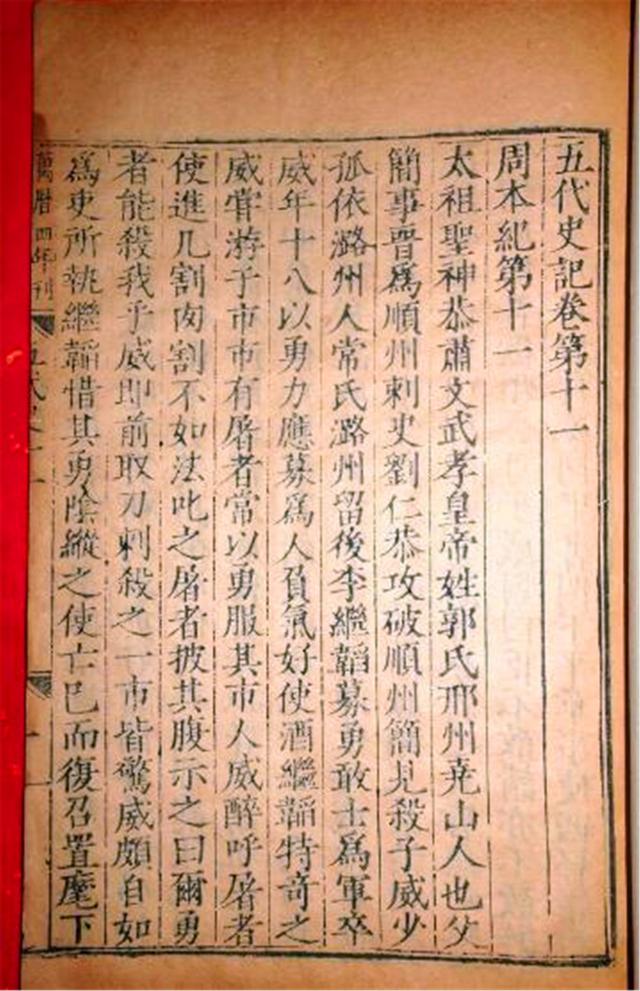 五代史記卷第十一
周本紀第十一
太祖聖神恭肅文武孝皇帝姓郭氏邢州堯山人也父
簡事晉爲順州刺史劉仁恭攻破順州簡見殺子威少
孤依潞州人常氏潞州留後李繼韜募勇敢士爲軍卒
威年十八以勇力應募爲人負氣好使酒繼韜特奇之
威嘗游于市市有屠者常以勇服其市人威醉呼屠者
使進几割肉割不如法叱之屠者披其腹示之曰爾勇
者能殺我乎威即前取刀刺殺之一市皆驚威頗自如
爲吏所執繼韜惜其勇陰縱之使亡已而復召置麾下
萬曆四年刊
五代史